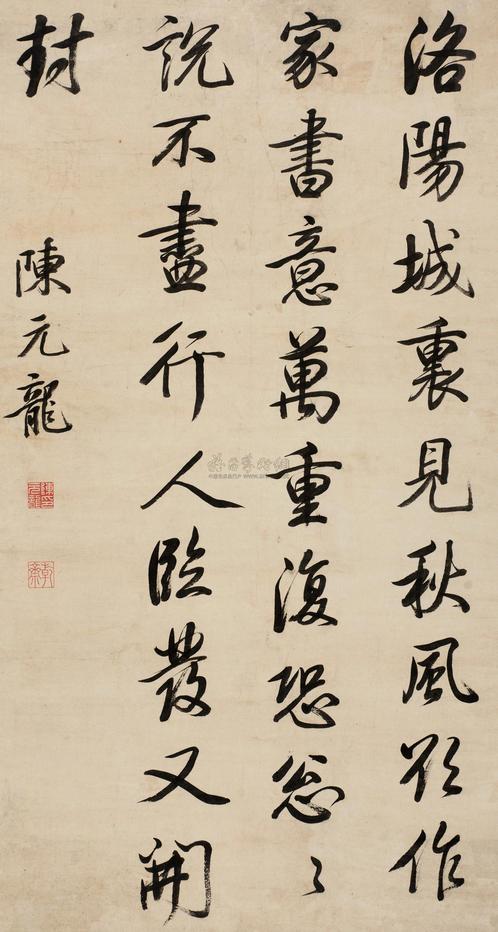 洛陽城裏見秋風欲作
家書意萬重復恐怱〻
說不盡行人臨發又開
封
陳元龍